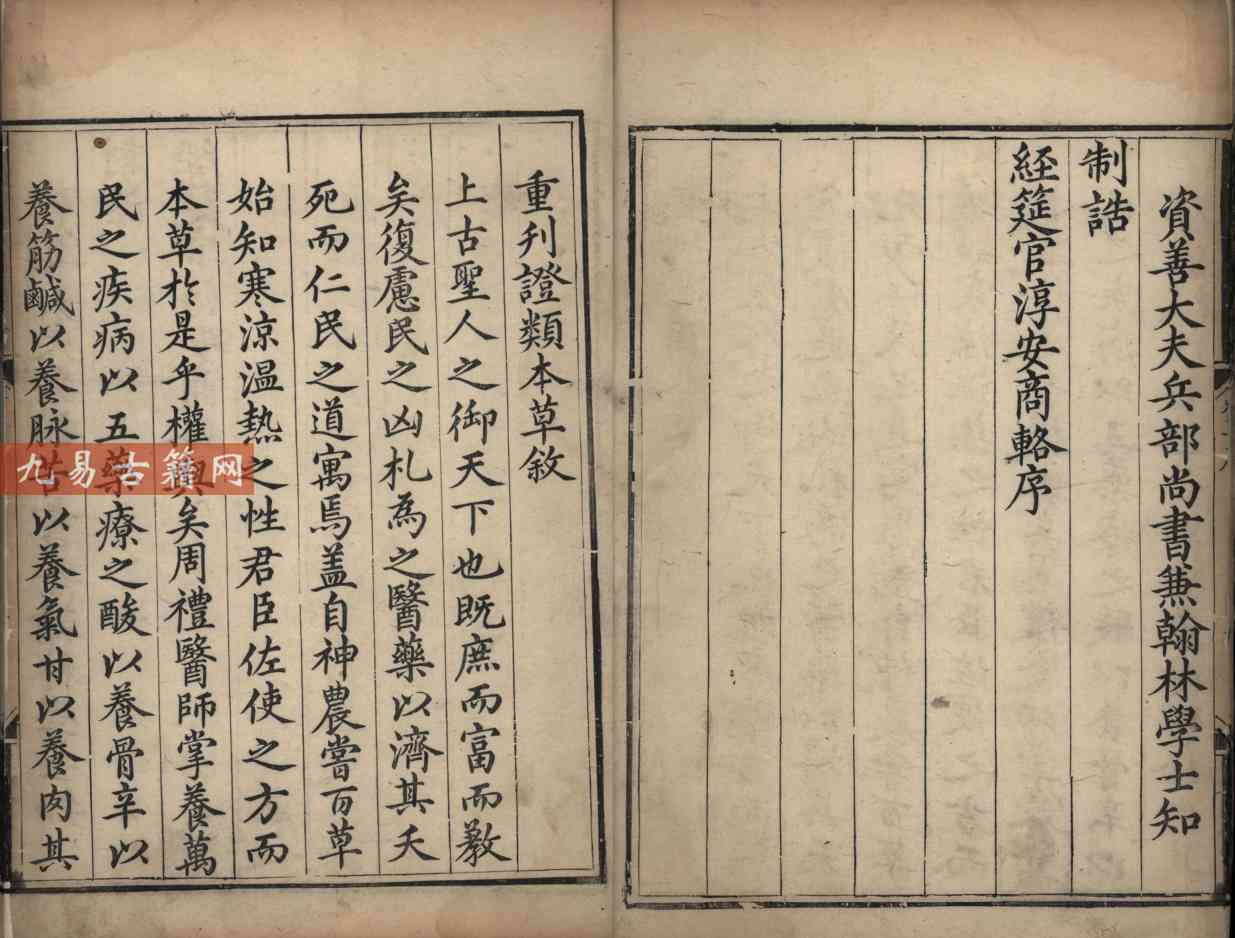 資善大夫兵部尚書兼翰林學士知
制誥
経筵官淳安商輅序
重刋證類本草敘
上古聖人之御天下也既庶而富而教
矣復慮民之凶札為之醫藥以濟其夭
死而仁民之道寓焉盖自神農嘗百草
始知寒涼温熱之性君臣佐使之方而
本草於是乎權輿矣周禮醫師掌養萬
民之疾病以五藥療之酸以養骨辛以
養筋鹹以養脉苦以養氣甘以養肉其
九易古籍网